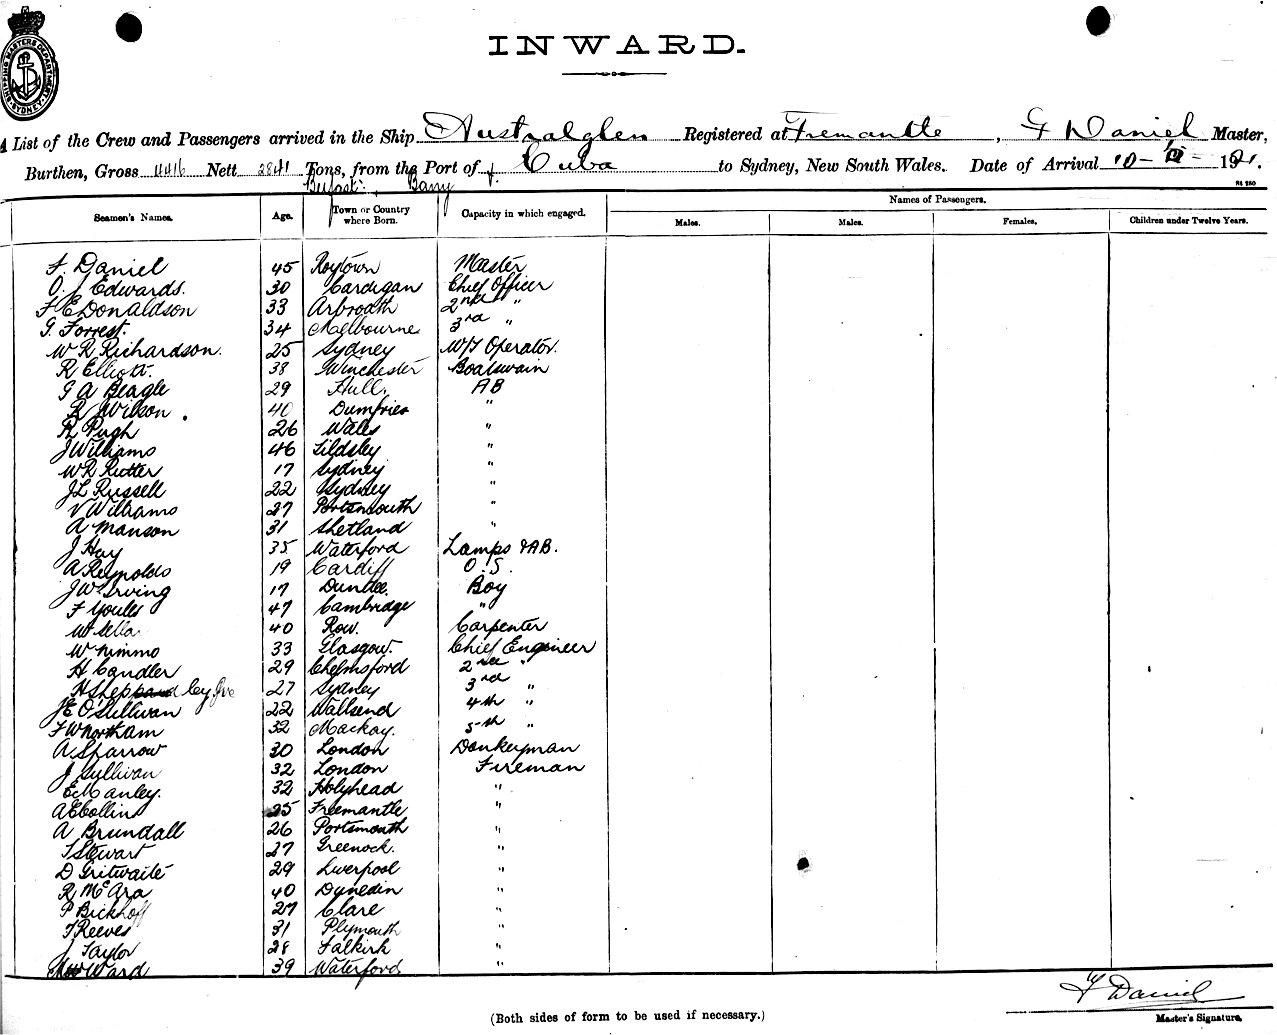 SHIPPING MASTERS DEPARTMENT SYDNEY
INWARD.
A List of the Crew and Passengers arrived in the Ship Australglen Registered at Fremantle, F Daniel Master,
Burthen, Gross 4416 Nett 2841 Tons, from the Port of Cuba to Sydney, New South Wales. Date of Arrival 10- - 1921.
Belfast Barry
Seamen's Names. Age. Town or Country where Born. Capacity in which engaged. Names of Passengers.
Males. Males. Females. Children under Twelve Years.
F. Daniel 45 Roytown Master
O. J Edwards. 30 Cardigan Chief Officer
F E Donaldson 33 Arbroath 2nd "
G. Forrest. 34 Melbourne 3rd "
W R Richardson. 25 Sydney W/T Operator.
R Elliott. 38 Winchester Boatswain
G A Beagle 29 Hull. AB
R Wilson 40 Dumfries "
R Pugh 26 Wales "
J Williams 46 Tildsley "
W R Rutter 17 Sydney "
J L Russell 22 Sydney "
V Williams 27 Portsmouth "
A Manson 31 Shetland "
J Hay 35 Waterford Lamps & AB.
A Reynolds 19 Cardiff O.S.
J W Irving 17 Dundee. Boy
F Youles 47 Cambridge "
W Sella 40 Row. Carpenter
W Nimmo 33 Glasgow. Chief Engineer
H Candler 29 Chelmsford 2nd "
H Sheppard 27 Sydney 3rd "
J E O'Sullivan 22 Wallsend 4th "
F W Northam 32 Mackay. 5th "
A Sparrow 30 London Donkeyman
J Sullivan 32 London Fireman
E Manley. 32 Holyhead "
A E Collins 25 Freemantle "
A Brundall 26 Portsmouth "
T Stewart 27 Greenock. "
D Gritwaite 29 Liverpool "
R McAra 40 Dunedin "
P Bickhoff 27 Clare "
T Reeves 31 Plymouth "
J Taylor 28 Falkirk "
Ward 39 Waterford "
F Daniel
Master's Signature.
(Both sides of form to be used if necessary.)